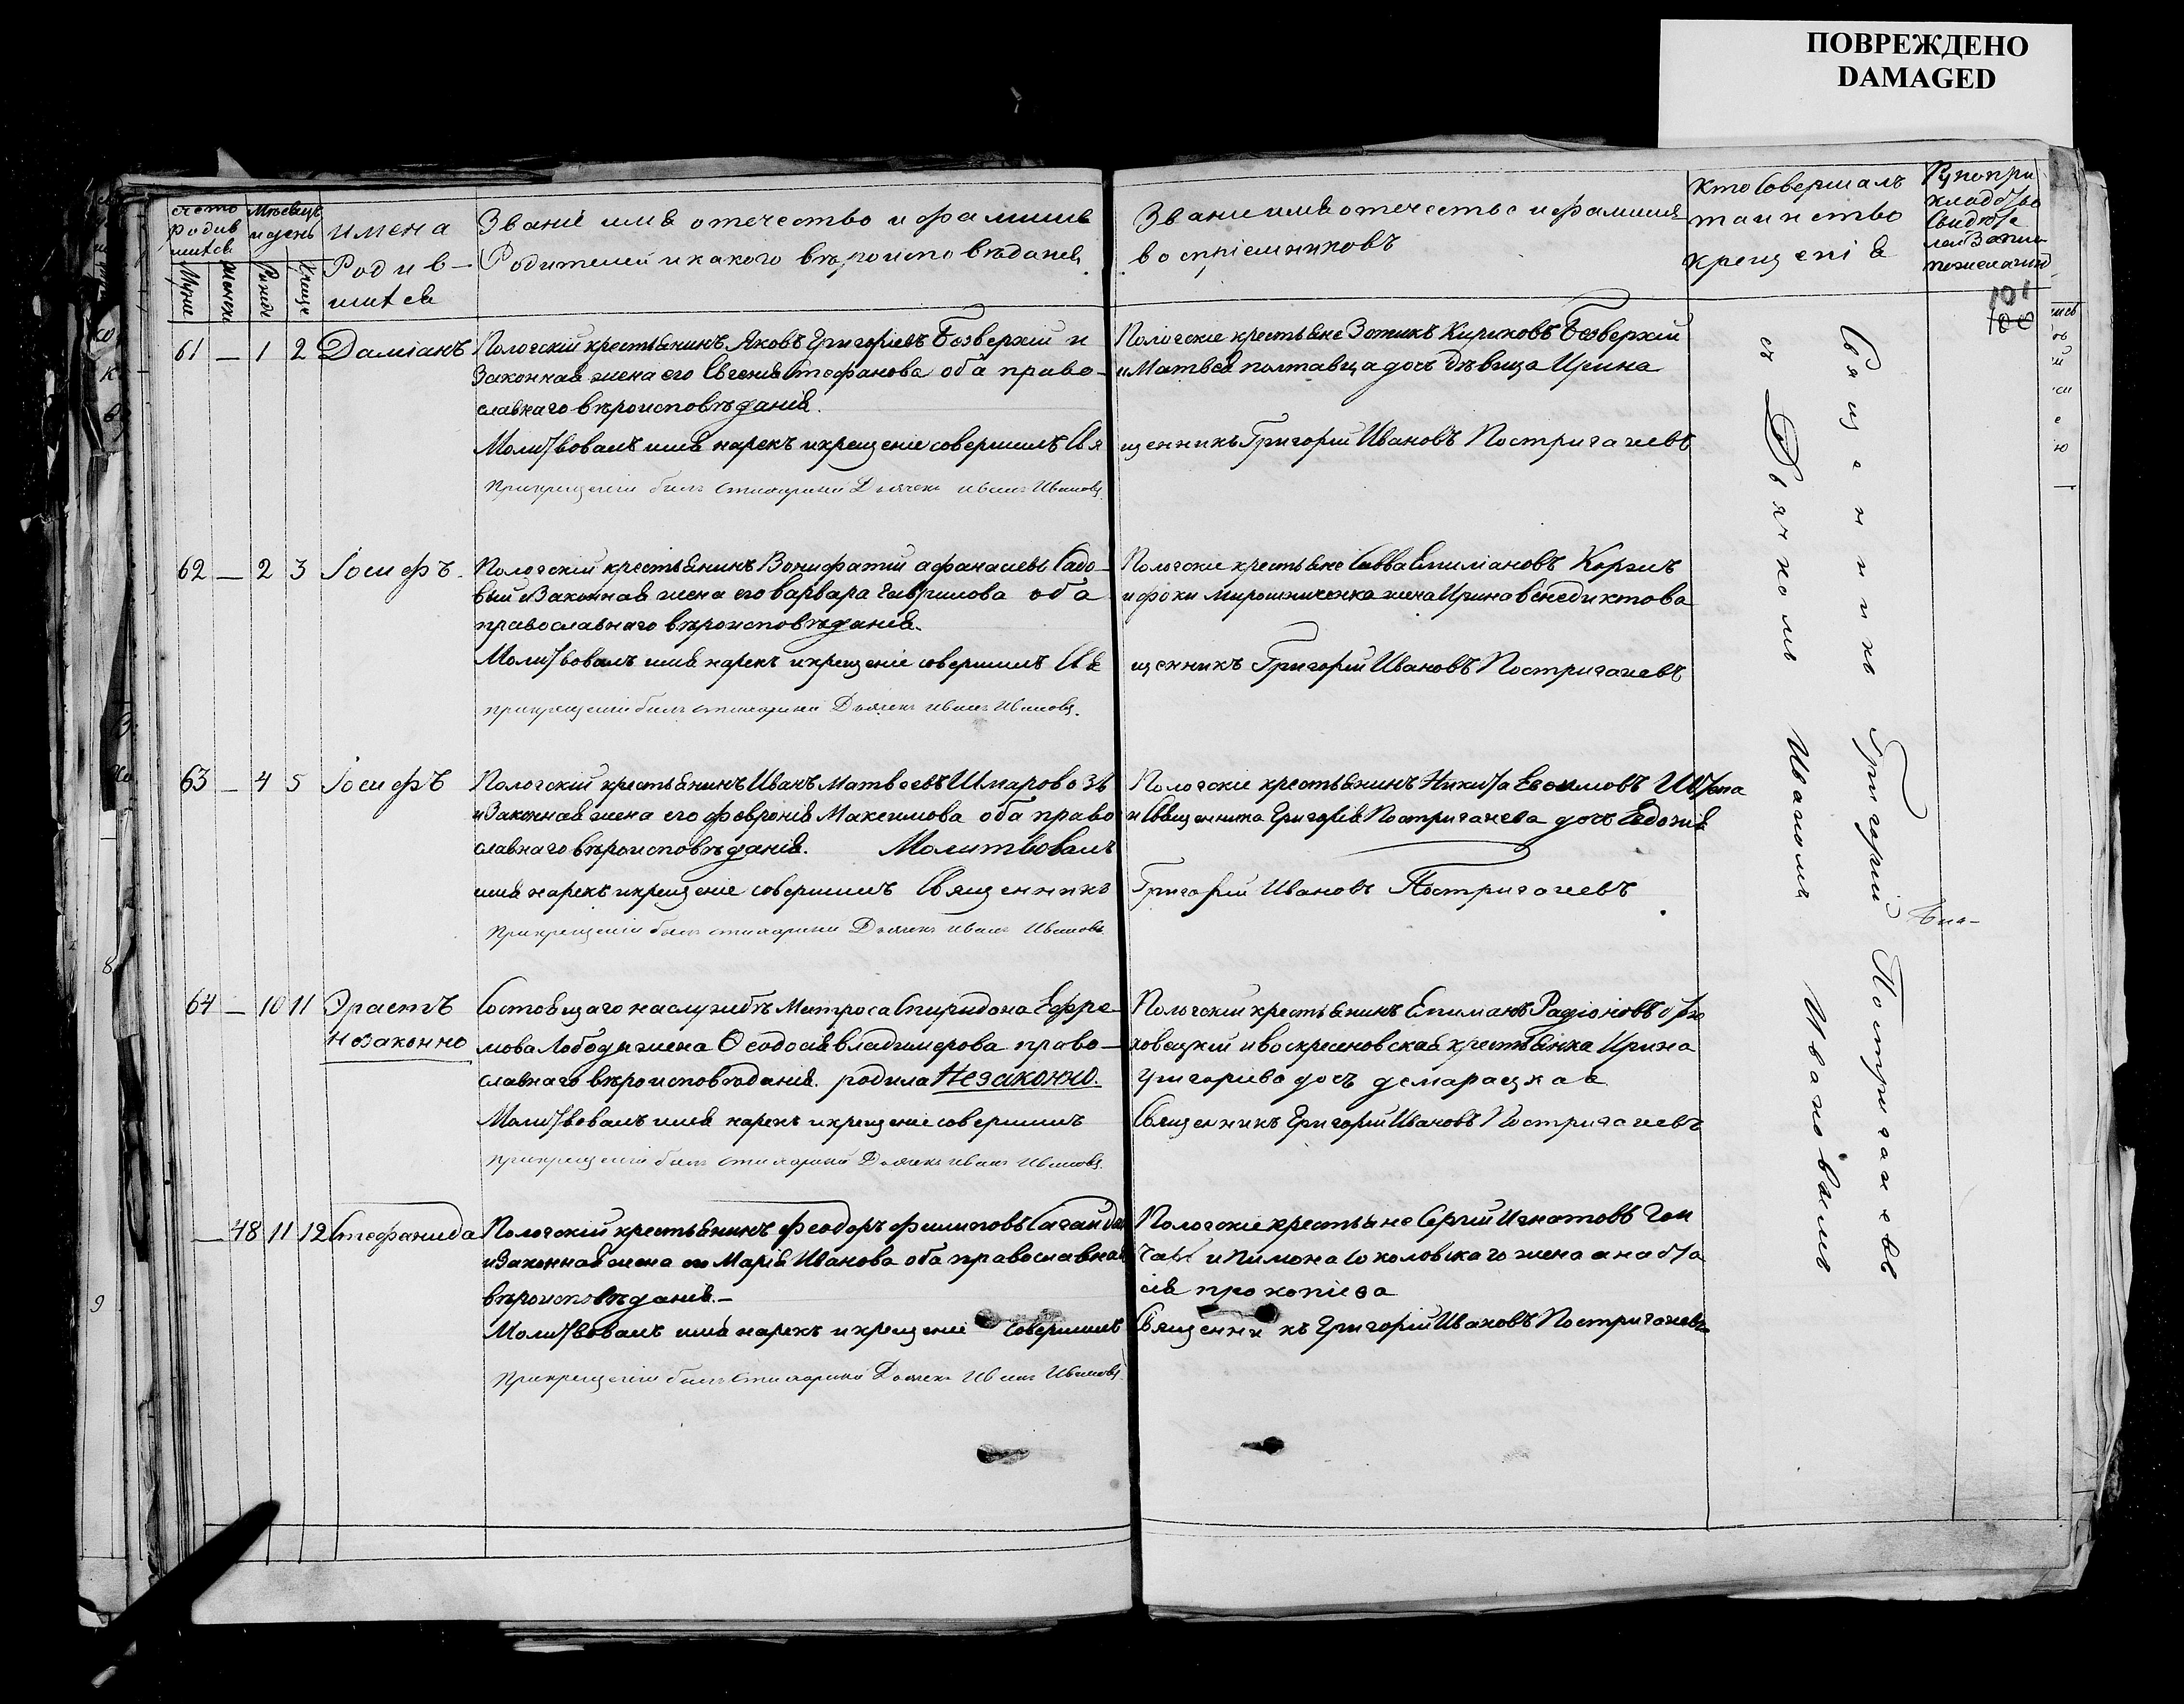 ПОВРЕЖДЕНО
DAMAGED
Счетъ родившихся
Мѣсяцъ и день
Имена Родившихся
Званіе имя отечество и фамилія
Родителей и какого вѣроисповѣданія
Званіе имя отечество и фамилія
воспріемниковъ
Кто совершалъ
таинство
крещенія
101
100
61 — 1 2 Даміанъ
Пологскій крестьянинъ Яковъ Григорьевъ Безверхій и
Законная жена его Евгенія Стефанова оба право-
славнаго вѣроисповѣданія.
Молитвовалъ имя нарекъ и крещеніе совершилъ Свя
При крещеніи былъ Дьячекъ Иванъ Ивановъ
Пологскіе крестьяне Зотикъ Кириковъ Безверхій
и Матвея полтавца дочь дѣвица Ирина
щенникъ Григорій Ивановъ Постригачевъ
62 — 2 3 Іосифъ.
Пологскій крестьянинъ Вонифатій афанасіевъ Садо-
вый и Законная жена его варвара гаврилова оба
православнаго вѣроисповѣданія.
Молитвовалъ имя нарекъ и крещеніе совершилъ Свя
При крещеніи былъ Дьячекъ Иванъ Ивановъ.
Пологскіе крестьяне Савва Епимановъ
и фоки Мирошниченка жена Ирина венедиктова
щенникъ Григорій Ивановъ Постригачевъ
63 — 4 5 Іосифъ
Пологскій крестьянинъ Иванъ Матвеевъ
и Законная жена его февронія Максимова оба право
славнаго вѣроисповѣданія. Молитвовалъ
имя нарекъ и крещеніе совершилъ Священникъ
При крещеніи былъ Дьячекъ Иванъ Ивановъ
Пологскіе крестьянинъ Никита Евфимовъ
и Священника Григорія Постригачева дочь Евдокія
Григорій Ивановъ Постригачевъ
64 — 10 11 Эрастъ
Незаконно
Состоящаго на службѣ Матроса Спиридона Ефре-
мова Лободы жена Ѳеодосія владимерова право-
славнаго вѣроисповѣданія. родила Незаконно.
Молитвовалъ имя нарекъ и крещеніе совершилъ
При крещеніи былъ Дьячекъ Иванъ Ивановъ
Пологскій крестьянинъ Епиманъ Радіоновъ
и воскресеновская крестьянка Ирина
григорьева дочь
Священникъ Григорій Ивановъ Постригачевъ
— 48 11 12 Стефанида
Пологскій крестьянинъ Феодоръ филиповъ
и Законная жена его Марія Иванова оба православнаго
вѣроисповѣданія.—
Молитвовалъ имя нарекъ и крещеніе совершилъ
При крещеніи былъ Дьячекъ Иванъ Ивановъ
Пологскіе крестьяне Сергій Игнатовъ Гон
чаръ и Пимона Соколовскаго жена анаста
сія прокопіева
Священникъ Григорій Ивановъ Постригачевъ
Священникъ Григорій Постригачевъ
съ Дьячкомъ Иваномъ Ивановымъ